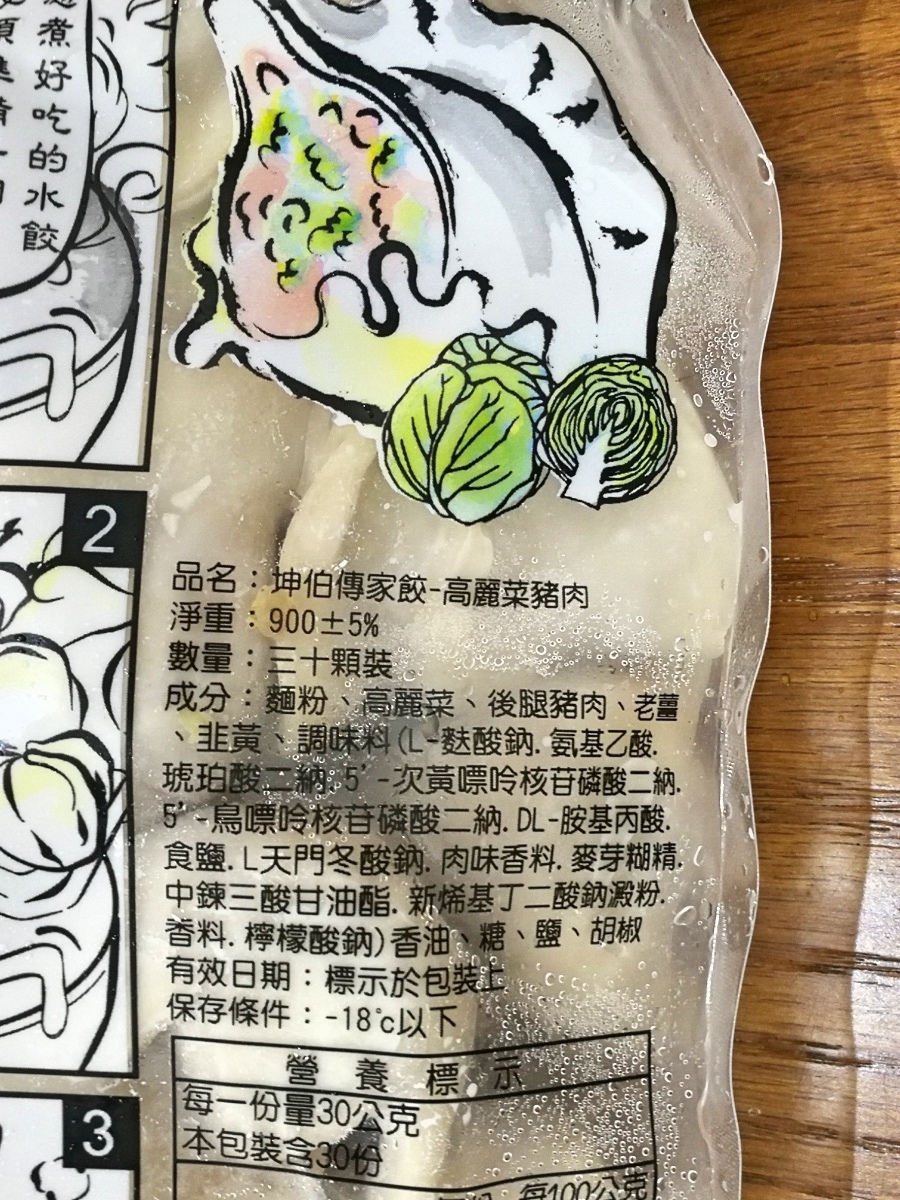 煮好吃的水餃
2
品名：坤伯傳家餃-高麗菜豬肉
淨重：900±5%
數量：三十顆裝
成分：麵粉、高麗菜、後腿豬肉、老薑
、韭黃、調味料(L-麩酸鈉.氨基乙酸.
琥珀酸二納.5’-次黃嘌呤核苷磷酸二納.
5’-鳥嘌呤核苷磷酸二納.DL-胺基丙酸.
食鹽.L天門冬酸鈉.肉味香料.麥芽糊精.
中鍊三酸甘油酯.新烯基丁二酸鈉澱粉.
香料.檸檬酸鈉)香油、糖、鹽、胡椒
有效日期：標示於包裝上
保存條件：-18℃以下
營養標示
每一份量30公克
本包裝含30份
每100公克
3